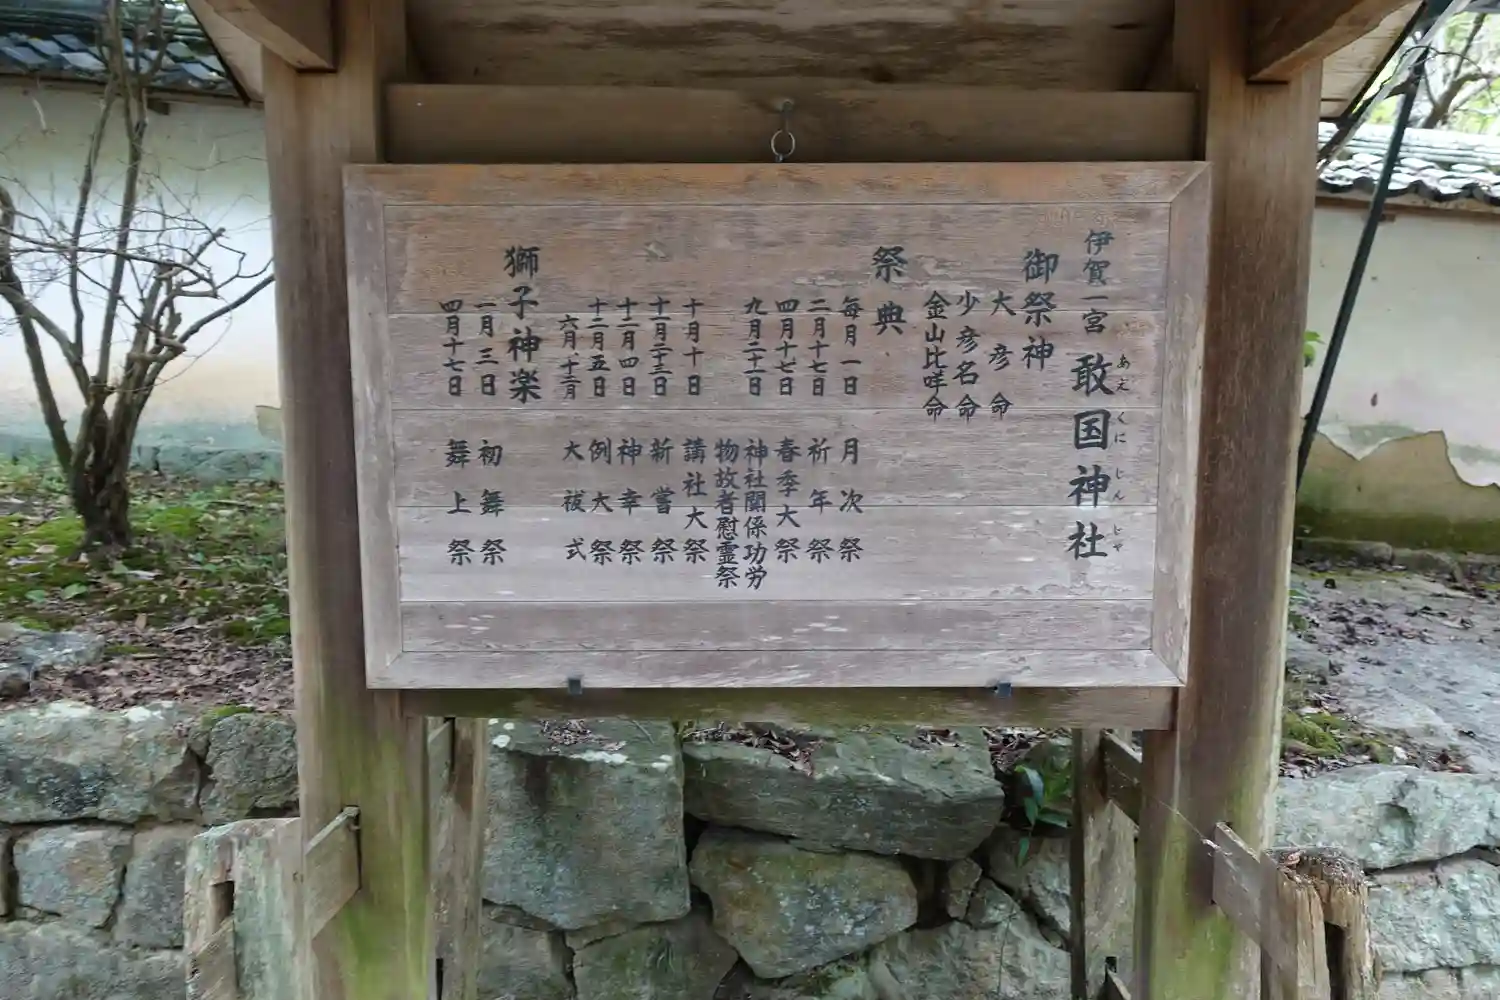 伊賀一宮 敢国神社
あえ くに じん じや
御祭神
大彦命
少彦名命
金山比咩命
祭典
毎月一日 月次祭
二月十七日 祈年祭
四月十七日 春季大祭
九月二十一日 神社関係功労
物故者慰霊祭
十月十日 講社大祭
十一月二十三日 新嘗祭
十二月四日 神幸祭
十二月五日 例大祭
六月、十二月 大祓式
獅子神楽
一月三日 初舞祭
四月十七日 舞上祭